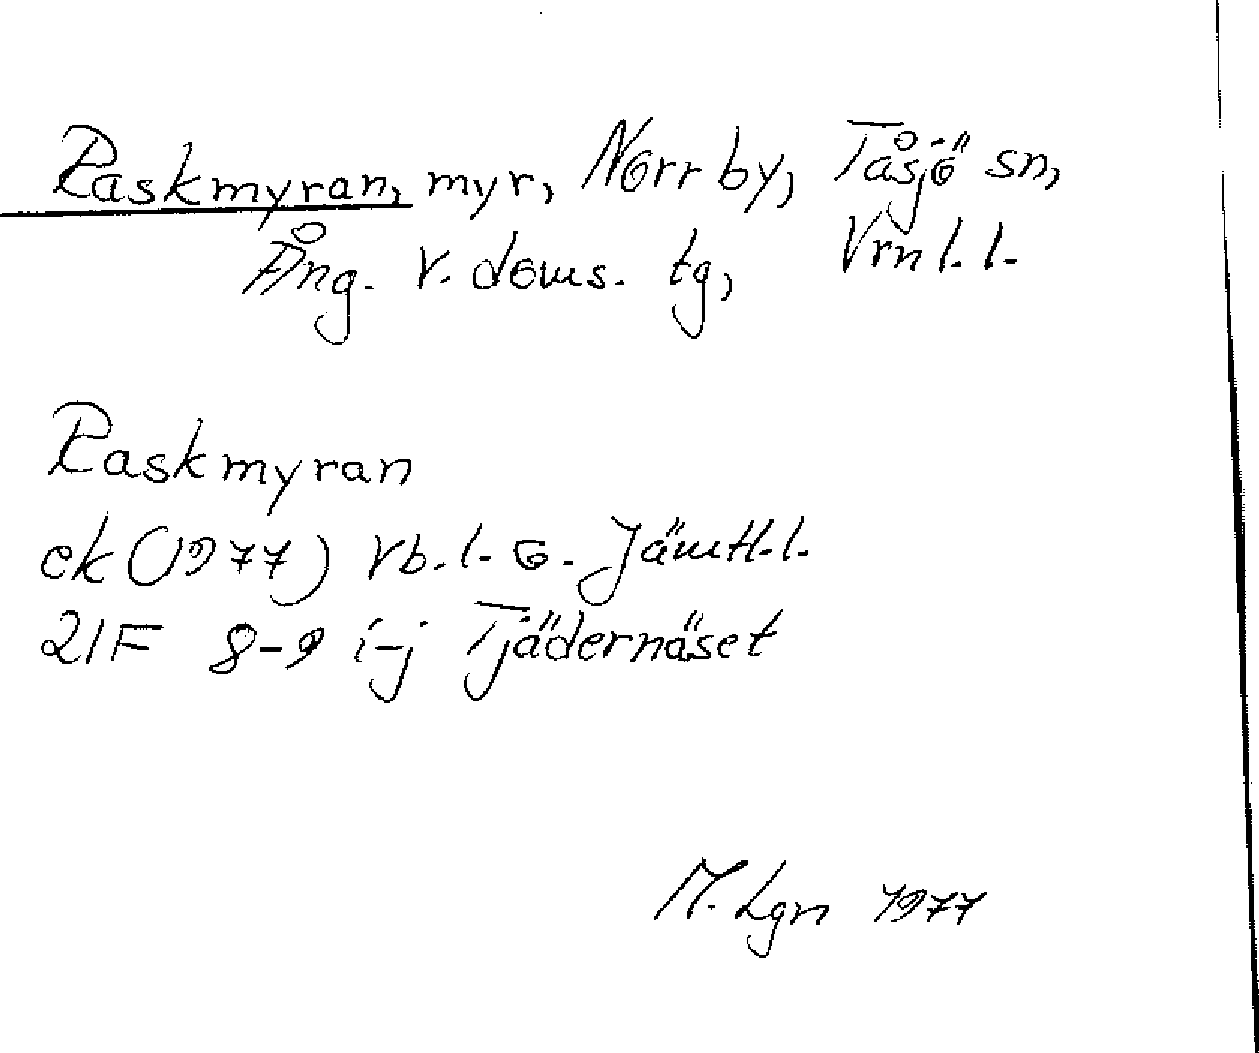 Raskmyran, myr, Norrby, Tåsjö sn,
Ång. v. doms. tg, Vrnl.l.
Raskmyran
ek (1977) Vb.l. o. Jämtl.l.
21F 8-9 i-j Tjädernäset
M. Lgn 1977